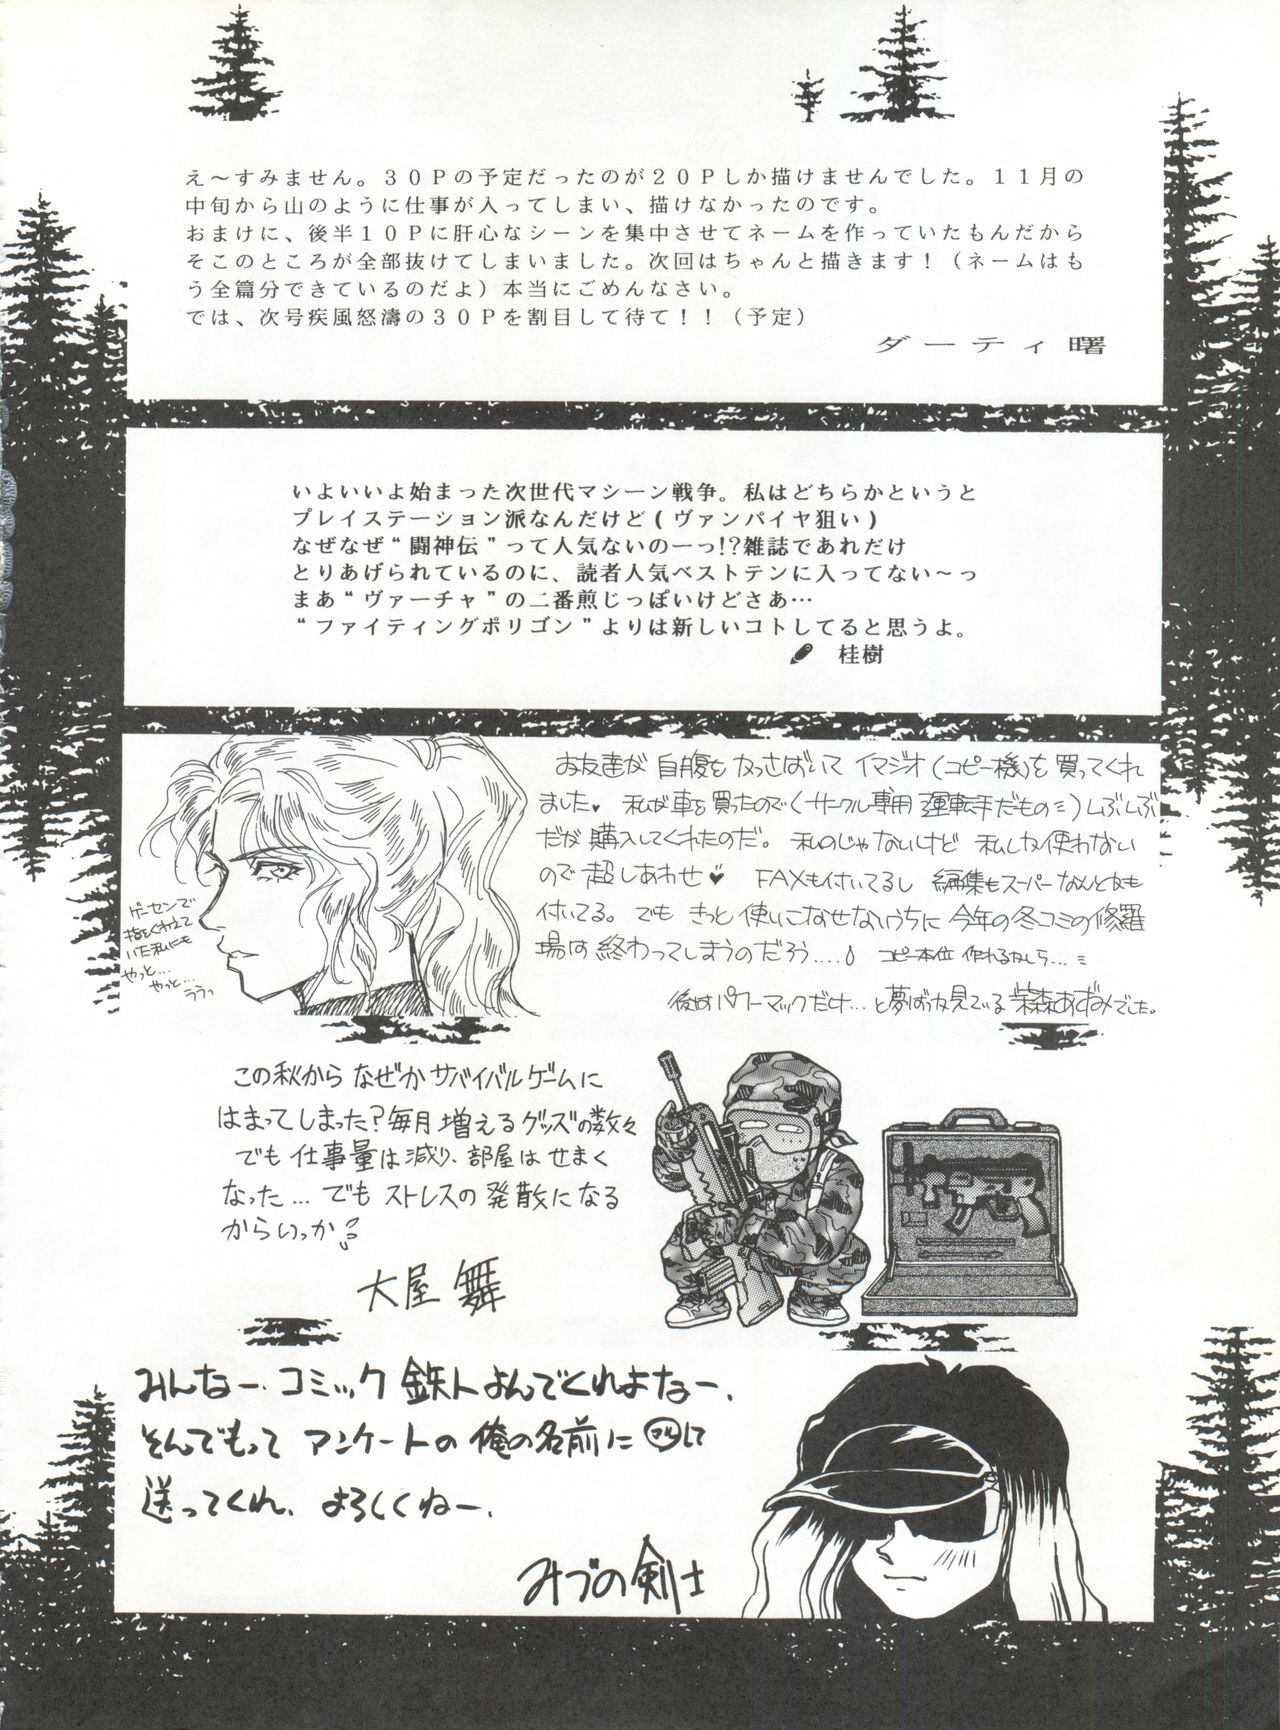 え～すみません。３０Ｐの予定だったのが２０Ｐしか描けませんでした。１１月の
中旬から山のように仕事が入ってしまい、描けなかったのです。
おまけに、後半１０Ｐに肝心なシーンを集中させてネームを作っていたもんだから
そこのところが全部抜けてしまいました。次回はちゃんと描きます！（ネームはも
う全篇分できているのだよ）本当にごめんなさい。
では、次号疾風怒濤の３０Ｐを割目して待て！！（予定）
ダーティ曙
いよいいよ始まった次世代マシーン戦争。私はどちらかというと
プレイステーション派なんだけど(ヴァンパイヤ狙い)
なぜなぜ“闘神伝”って人気ないのーっ!?雑誌であれだけ
とりあげられているのに、読者人気ベストテンに入ってない～っ
まあ“ヴァーチャ”の二番煎じっぽいけどさあ…
“ファイティングポリゴン”よりは新しいコトしてると思うよ。
桂樹
お友達が 自腹を かっさばいて イマジオ(コピー機)を 買ってくれ
ました♥ 私が車を買ったので(サークル専用 運転手だもの)しぶしぶ
だが 購入してくれたのだ。 私のじゃないけど 私しか使わない
ので 超しあわせ♥ FAXも付いてるし 編集もスーパーなんとかも
付いてる。でも きっと 使いこなせないうちに 今年の冬コミの修羅
場は 終わってしまうのだろう....。 コピー本位 作れるかしら...
後はパワーマックだけ...と夢ばっか見ている 紫森あずみでした。
ゲーセンで
指をくわえて
いた私にも
やっと...
やっと...
ううっ
この秋から なぜか サバイバルゲームに
はまってしまった?毎月 増える グッズの数々
でも 仕事量は減り、部屋は せまく
なった... でも ストレスの 発散に なる
から いっか
大屋 舞
みんなー、コミック 鉄人よんでくれよなー、
そんでもって アンケートの 俺の名前に マルして
送ってくれ、よろしくねー、
みづの剣士